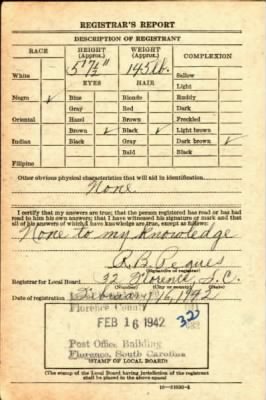 REGISTRAR'S REPORT
DESCRIPTION OF REGISTRANT
RACE HEIGHT (Approx.) WEIGHT (Approx.) COMPLEXION
5' 7½" 145 lb.
White EYES HAIR Sallow
Light
Negro ✓ Blue Blonde Ruddy
Gray Red Dark
Oriental Hazel Brown Freckled
Brown ✓ Black ✓ Light brown
Indian Black Gray Dark brown ✓
Bald Black
Filipino
Other obvious physical characteristics that will aid in identification
None
I certify that my answers are true; that the person registered has read or has had
read to him his own answers; that I have witnessed his signature or mark and that
all of his answers of which I have knowledge are true, except as follows:
None to my Knowledge
R. B. Pegues
(Signature of registrar)
Registrar for Local Board 32 Florence, S.C.
(Number) (City or county) (State)
Date of registration February 16, 1942
Florence County
FEB 16 1942 32
Post Office Building
Florence, South Carolina
(STAMP OF LOCAL BOARD)
(The stamp of the Local Board having jurisdiction of the registrant
shall be placed in the above space)